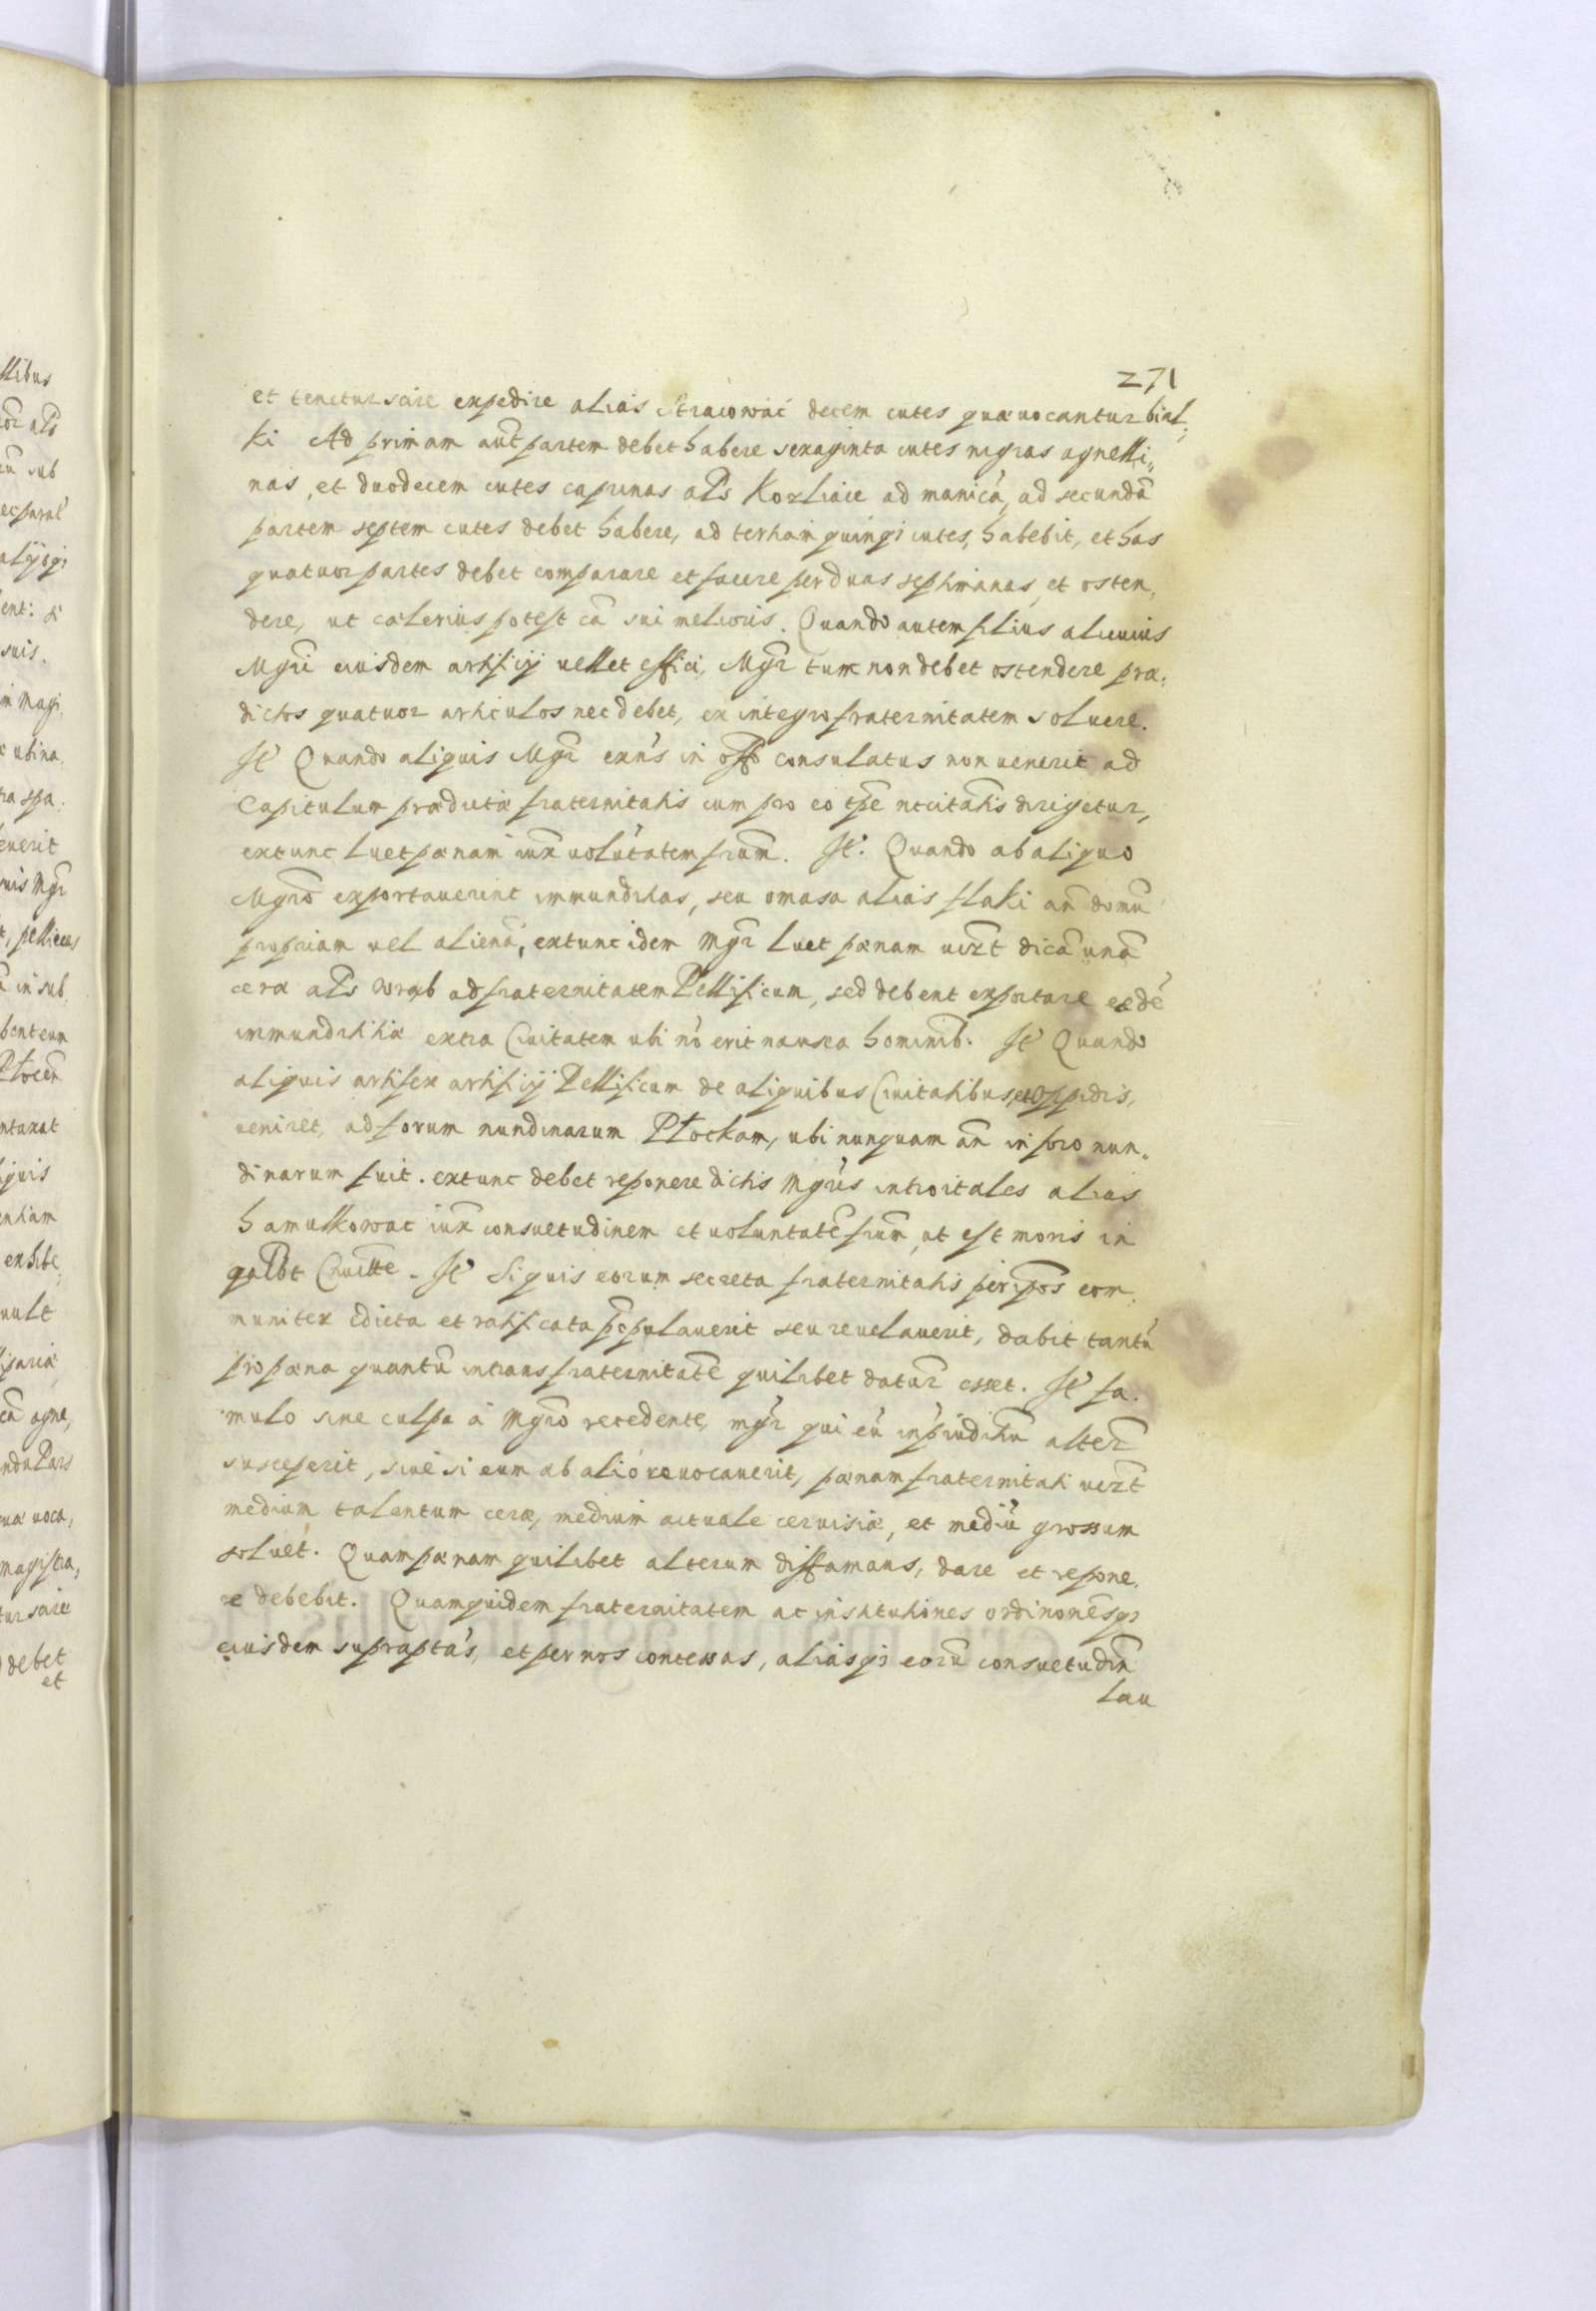 271
et tenetur scire expedire aliàs Straiować decem cutes quæ uocantur biał„
ki Ad primam aut̃ partem debet habere sexaginta cutes nigras agnelli„
nas, et duodecem cutes caprinas alẽs Kozliaie ad manicã, ad secundã
partem septem cutes debet habere, ad tertiam quinq; cutes, habebit, et has
quatuor partes debet comparare et facere per duas septimanas, et osten„
dere, ut cælerius potest cã sui melioris. Quando autem filius alicuius
Mgri eiusdem artificij uellet effici, Mgr̃ tunc non debet ostendere præ„
dictos quatuor articulos nec debet, ex integro fraternitatem soluere.
It̃ Quando aliquis Mgr̃ exñs in off̃o consulatus non uenerit ad
Capitulum prædictæ fraternitatis cum pro eo tp̃e ntcitatis dirigetur,
extunc luet pænam iux̃ uolũtatem frum̃. It̃. Quando ab aliquo
Mgrõ exportauerint immunditias, seu omasa aliàs flaki añ domũ
propriam uel alienã, extunc idem Mgr̃ luet pænam uizt̃ dicã unã
ceræ alẽs wrąb ad fraternitatem Pellificum, sed debent exportare eædẽ
immunditiæ extra Ciuitatem ubi nõ erit nausea hominib. It̃ Quando
aliquis artifex artificij Pellificum de aliquibus Ciuitatibus, et Oppidis,
ueniret, ad forum nundinarum Plockam, ubi nunquam añ in foro nun„
dinarum fuit. extunc debet reponere dictis Mgrĩs introitales alias
hamulkowac iux̃ consuetudinem et uoluntatẽ frum̃, ut est moris in
qualbt Ciuitte. It̃ Si quis eorum secreta fraternitatis per ipõs com„
muniter edicta et ratificata ppulauerit seu reuelauerit, dabit tantũ
pro pæna quantũ intrans fraternitatẽ quilibet datur̃ esset. It̃ fa„
mulo sine culpa à Mgrõ recedente, mgr̃ qui eũ in p̃iuditiũ alter̃
susceperit, siue si eum ab alio reuocauerit, pænam fraternitati uizt̃
medium talentum ceræ, medium actuale ceruisiæ, et mediũ grossum
soluet. Quam pænam quilibet alterum diffamans, dare et repone„
re debebit. Quamquidem fraternitatem ac institutiones ordinonẽsq;
eiusdem supraptãs, et per nos contexas, aliasq; eorũ consuetudiñ
lau